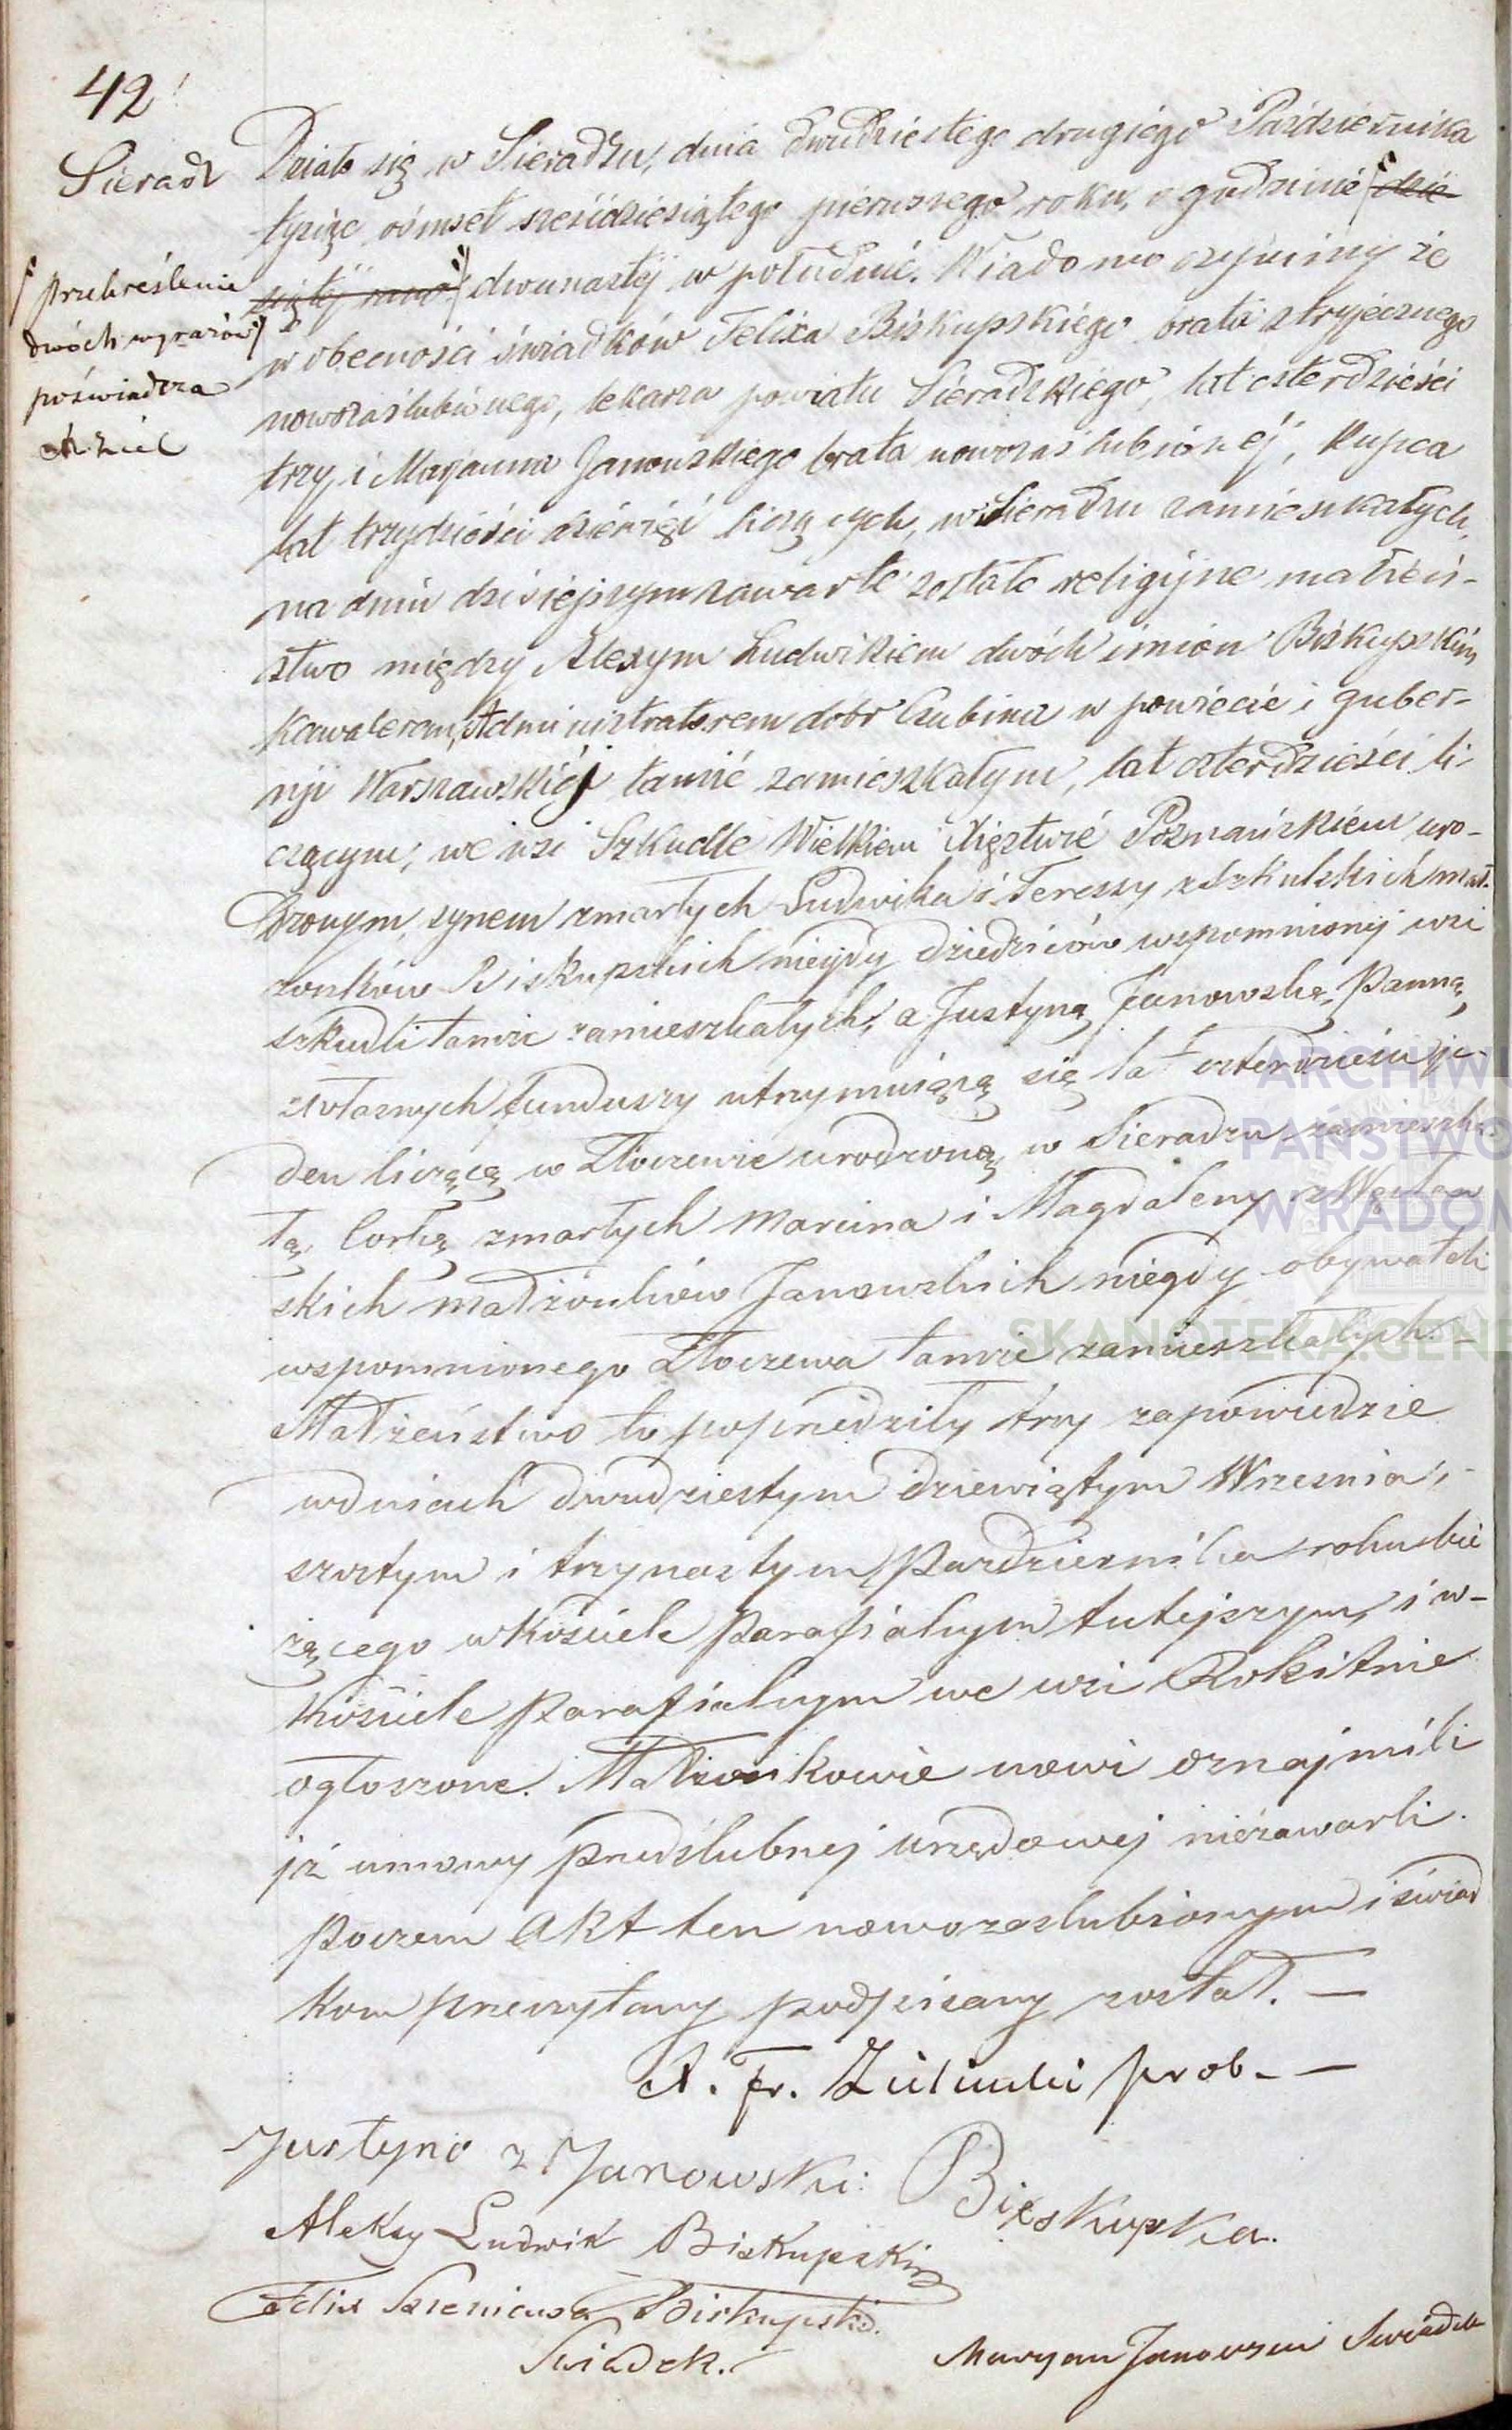 42
Sieradz
Działo się w Sieradzu, dnia dwudziestego drugiego Pazdziernika
tysiąc ośmset sześćdziesiątego pierwszego roku, o godzinie dzie-
siątéj dwunastéj w południe. Wiadomo czyniemy że
w obecności świadków Felixa Biskupskiégo brata stryjecznego
nowozaślubionego, lekarza powiatu Sieradzkiego, lat czterdzieści
trzy, i Maryanna Janowskiego brata nowozaślubionéj, Kupca
lat trzydzieści dziewięć liczących, w Sieradzu zamieszkałych,
na dniu dzisiejszym zawarte zostało religijne małżeń-
stwo między Alexym Ludwikiem dwóch imion Biskupskim
Kawalerem, Administratorem dóbr Czubina w powiecie i guber-
nji Warszawskiéj tamże zamieszkałym, lat czterdzieści li-
czącym, we wsi Szkudle Wielkiem Xięstwie Poznańskiem uro-
dzonym, synem zmarłych Ludwika i Teressy z Szkulskich mał-
żonków Biskupskich niegdy dziedziców wspomnionej wsi
Szkudli tamże zamieszkałych, a Justyną Janowską, Panną,
z własnych funduszy utrzymuiącą się lat czterdzieści je-
den liczącą, w Złoczewie urodzoną, w Sieradzu zamieszka-
łą, Corką zmarłych Marcina i Magdaleny z
skich małżonków Janowskich niegdy obywateli
wspomnionego Złoczewa tamże zamieszkałych. –
Małżeństwo to poprzedziły trzy zapowiedzie
w dniach dwudziestym dziewiątym Wrzesnia,
szostym i trzynastym Pazdziernika roku bie
żącego w Kosciele Parafialnym tutejszym, i w-
Kosciele Parafialnym we wsi Rokitnie
ogłoszone. Małżonkowie nowi oznajmili
iż umowy przedślubnej urzędowej niezawarli.
Poczem Akt ten nowozaslubionym i świad
kom przeczytany podpisany został. –
X. Fr. prob. –
Justyna z Janowski: Biskupska.
Aleksy Ludwik Biskupski
Felix Biskupski.
Swiadek.
Maryan Janowski Swiadek
Przekreślenie
dwóch wyrazów
poświadcza
ARCHIWU
PAŃSTWO
W RADOM
SKANOTEKA.GENE